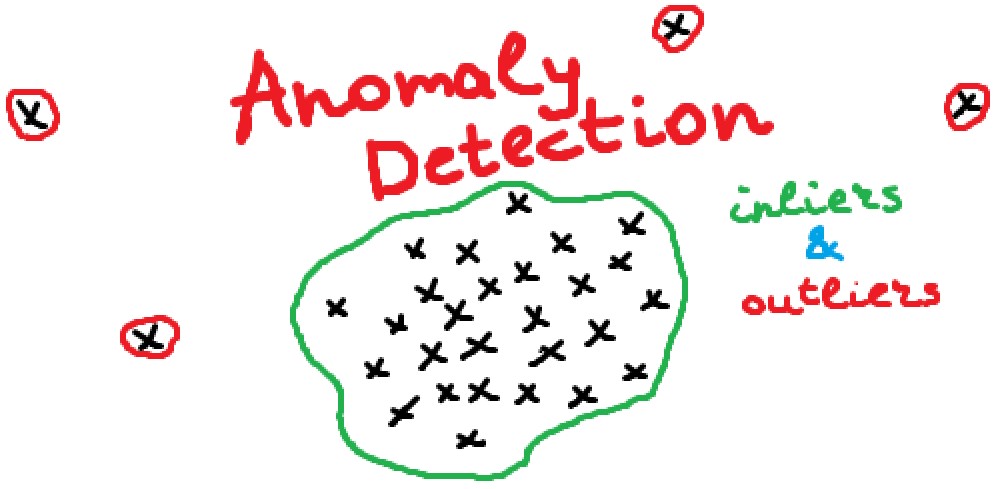 Anomaly
Detection
inliers
&
outliers